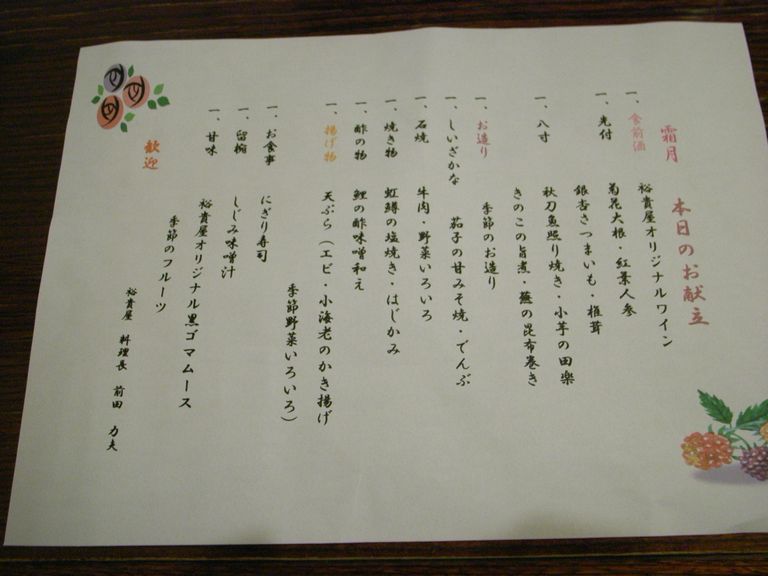 霜月 本日のお献立
一、食前酒 裕貴屋オリジナルワイン
一、先付 菊花大根・紅葉人参
銀杏さつまいも・椎茸
一、八寸 秋刀魚照り焼き・小芋の田楽
きのこの旨煮・鮭の昆布巻き
一、お造り 季節のお造り
一、しいざかな 茄子の甘みそ焼・でんぶ
一、石焼 牛肉・野菜いろいろ
一、焼き物 虹鱒の塩焼き・はじかみ
一、酢の物 鯉の酢味噌和え
一、揚げ物 天ぷら(エビ・小海老のかき揚げ
季節野菜いろいろ)
一、お食事 にぎり寿司
一、留椀 しじみ味噌汁
一、甘味 裕貴屋オリジナル黒ゴマムース
季節のフルーツ
歓迎
裕貴屋 料理長 前田 力夫